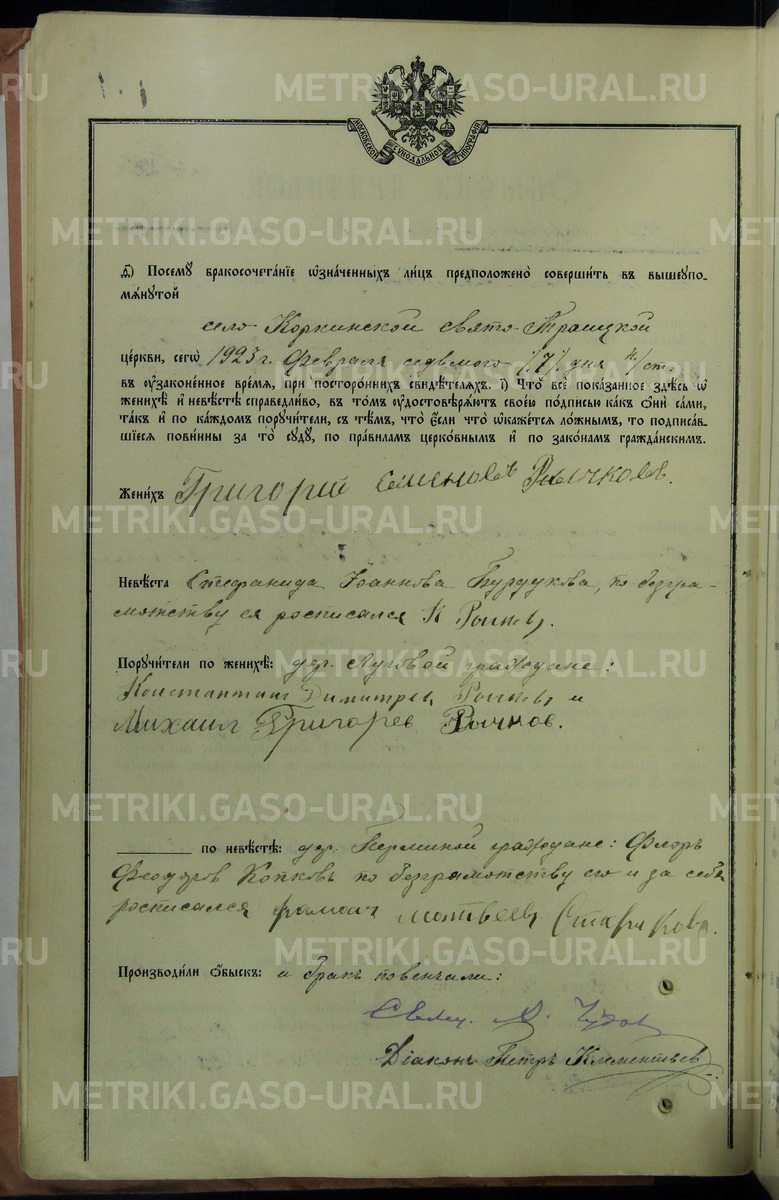 METRIKI.GASO-URAL.RU
МОСКОВСКОЙ СѴНОДАЛЬНОЙ ТИПОГРАФІИ
ѳ҃) Посемꙋ̀ бракосочета́нїе ѡ҆зна́ченныхъ ли́цъ предположено̀ соверши́ть въ вышеꙋпо-
мѧ́нꙋтой
село Коркинской свято-Троицкой
це́ркви, сегѡ̀ 1923 г. Февраля седьмого /7/ дня н/ст.
въ ᲂу҆зако́ненное вре́мѧ, при посторо́ннихъ свидѣ́телѧхъ. і҃) Что̀ всѐ пока́занное здѣ́сь ѡ҆
женихѣ̀ и҆ невѣ́стѣ справедли́во, въ то́мъ ᲂу҆достовѣрѧ́ютъ свое́ю по́дписью ка́къ ѻ҆нѝ са́ми,
та́къ и҆ по ка́ждомъ порꙋчи́тели, съ тѣ́мъ, что̀ є҆́сли что̀ ѡ҆ка́жетсѧ ло́жнымъ, то подписа́в-
шїесѧ пови́нны за то̀ сꙋдꙋ̀, по пра́виламъ церко́внымъ и҆ по зако́намъ гражда́нскимъ.
Жени́хъ Григорий Семеновъ Рычковъ.
Невѣ́ста Стефанида Іоаннова Бурдукова, по безгра-
мотству ея росписался К Рычков.
Порꙋчи́тели по женихѣ̀: дер. Луговой граждане:
Константин Димитрев Рычков и
Михаил Григорев Рычков.
по невѣ́стѣ: дер. Перминой граждане: Флоръ
Феодоров Копковъ по безграмотству его и за себя
росписался Матвеевъ Стариковъ.
Производи́ли ѻ҆́быскъ: и бракъ повенчали:
Свящ. Чудов
Діаконъ Петръ Клементьев